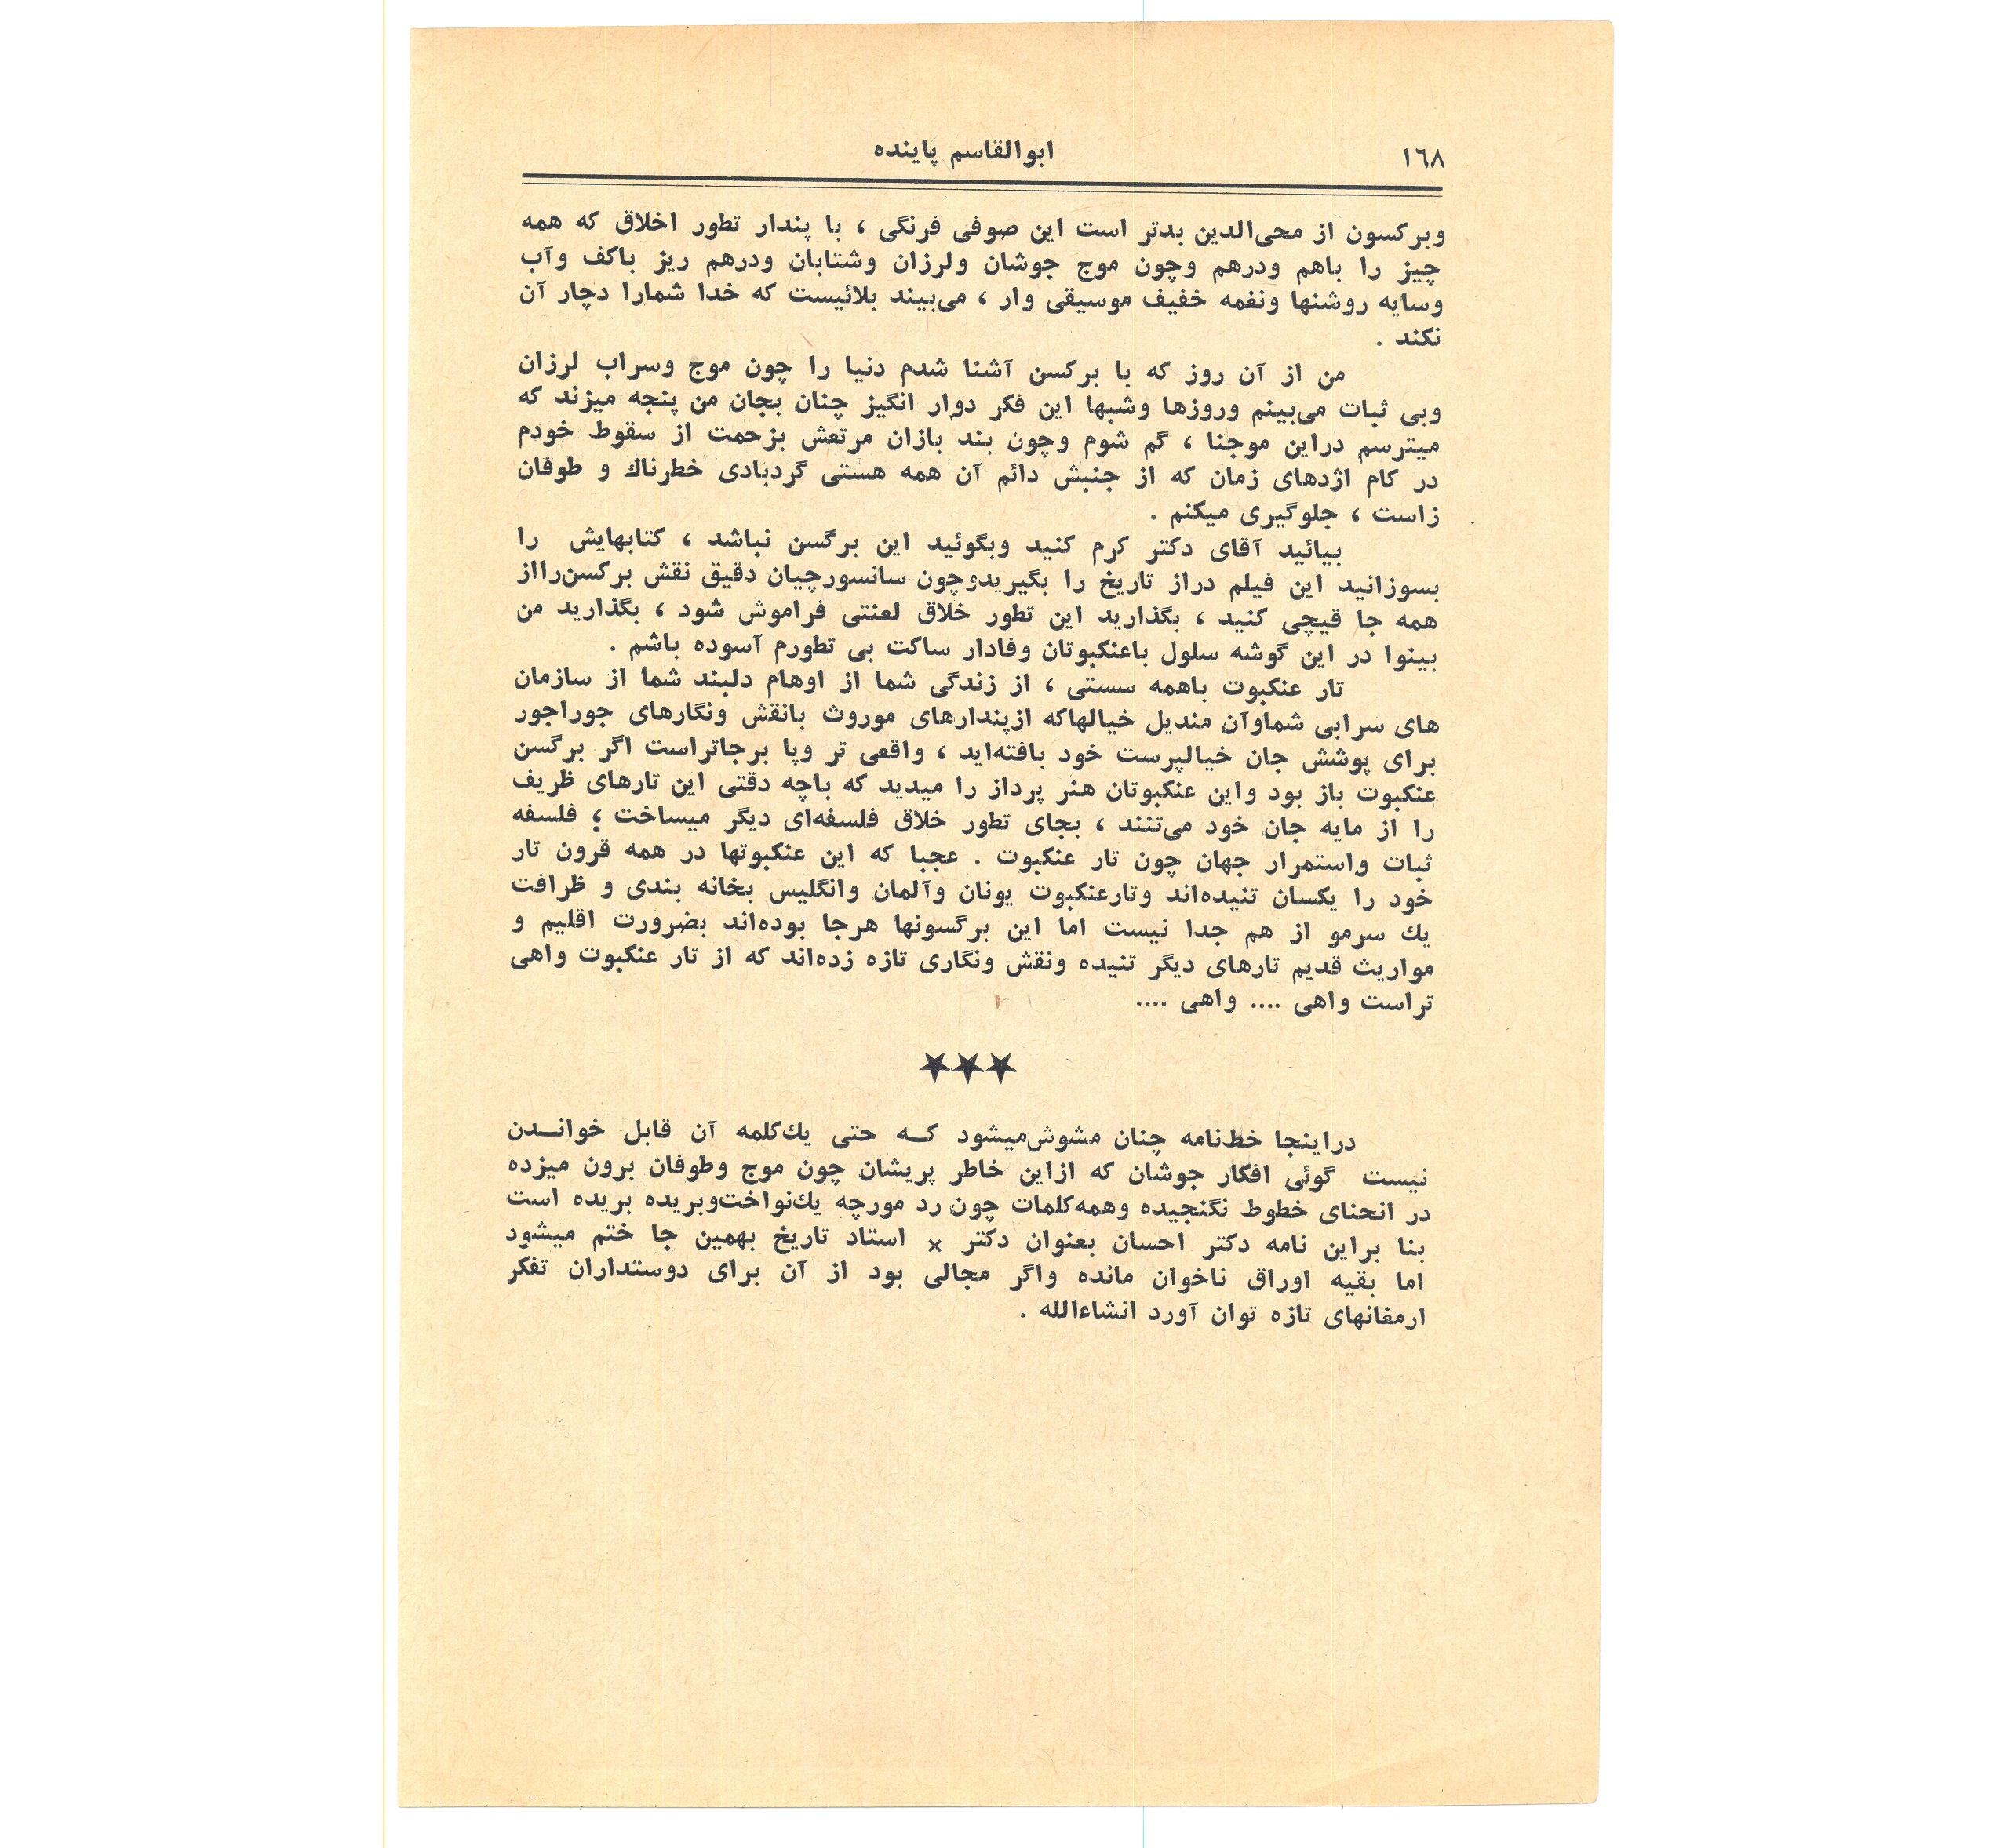 ١٦٨
ابوالقاسم پاینده
وبرکسون از محی‌الدین بدتر است این صوفی فرنگی ، با پندار تطور اخلاق که همه
چیز را باهم ودرهم وچون موج جوشان ولرزان وشتابان ودرهم ریز باکف وآب
وسایه روشنها ونغمه خفیف موسیقی وار ، می‌بیند بلائیست که خدا شمارا دچار آن
نکند .
من از آن روز که با برکسن آشنا شدم دنیا را چون موج وسراب لرزان
وبی ثبات می‌بینم وروزها وشبها این فکر دوار انگیز چنان بجان من پنجه میزند که
میترسم دراین موجنا ، گم شوم وچون بند بازان مرتعش بزحمت از سقوط خودم
در کام اژدهای زمان که از جنبش دائم آن همه هستی گردبادی خطرناك و طوفان
زاست ، جلوگیری میکنم .
بیائید آقای دکتر کرم کنید وبگوئید این برگسن نباشد ، کتابهایش را
بسوزانید این فیلم دراز تاریخ را بگیریدوچون سانسورچیان دقیق نقش برکسن‌رااز
همه جا قیچی کنید ، بگذارید این تطور خلاق لعنتی فراموش شود ، بگذارید من
بینوا در این گوشه سلول باعنکبوتان وفادار ساکت بی تطورم آسوده باشم .
تار عنکبوت باهمه سستی ، از زندگی شما از اوهام دلبند شما از سازمان
های سرابی شماوآن مندیل خیالهاکه ازپندارهای موروث بانقش ونگارهای جوراجور
برای پوشش جان خیالپرست خود بافته‌اید ، واقعی تر وپا برجاتراست اگر برگسن
عنکبوت باز بود واین عنکبوتان هنر پرداز را میدید که باچه دقتی این تارهای ظریف
را از مایه جان خود می‌تنند ، بجای تطور خلاق فلسفه‌ای دیگر میساخت ؛ فلسفه
ثبات واستمرار جهان چون تار عنکبوت . عجبا که این عنکبوتها در همه قرون تار
خود را یکسان تنیده‌اند وتارعنکبوت یونان وآلمان وانگلیس بخانه بندی و ظرافت
یك سرمو از هم جدا نیست اما این برگسونها هرجا بوده‌اند بضرورت اقلیم و
مواریث قدیم تارهای دیگر تنیده ونقش ونگاری تازه زده‌اند که از تار عنکبوت واهی
تراست واهی .... واهی ....
★★★
دراینجا خط‌نامه چنان مشوش‌میشود کـه حتی یك‌کلمه آن قابل خوانـدن
نیست گوئی افکار جوشان که ازاین خاطر پریشان چون موج وطوفان برون میزده
در انحنای خطوط نگنجیده وهمه‌کلمات چون رد مورچه یك‌نواخت‌وبریده بریده است
بنا براین نامه دکتر احسان بعنوان دکتر × استاد تاریخ بهمین جا ختم میشود
اما بقیه اوراق ناخوان مانده واگر مجالی بود از آن برای دوستداران تفکر
ارمغانهای تازه توان آورد انشاءالله .